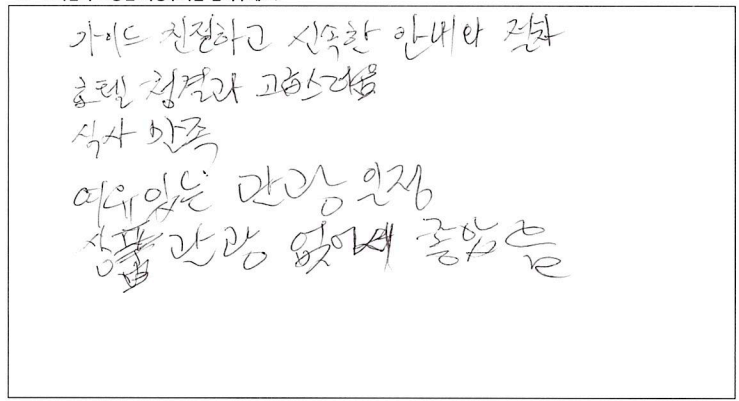 가이드 친절하고 신속한 안내와 절차
호텔 청결과 고급스러움
식사 만족
여유있는 관광 일정
상품관광 없어서 좋았음